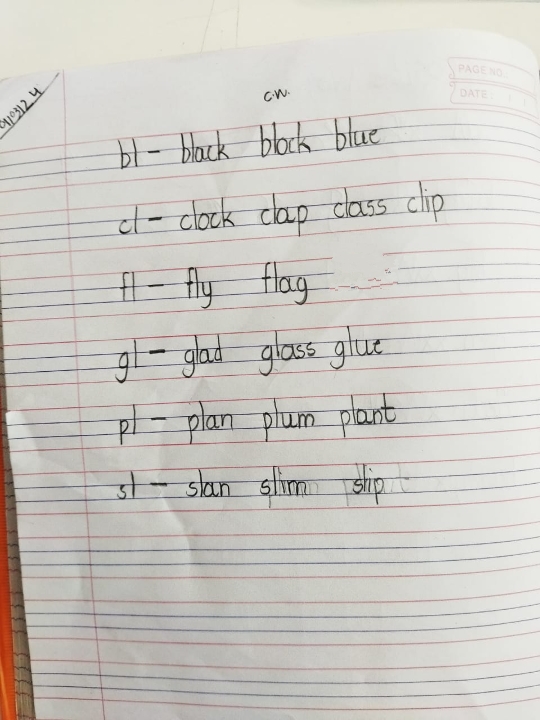 C.W.
PAGE NO.
DATE: / /
bl - black block blue
cl - clock clap class clip
fl - fly flag
gl - glad glass glue
pl - plan plum plant
sl - slan slim slip